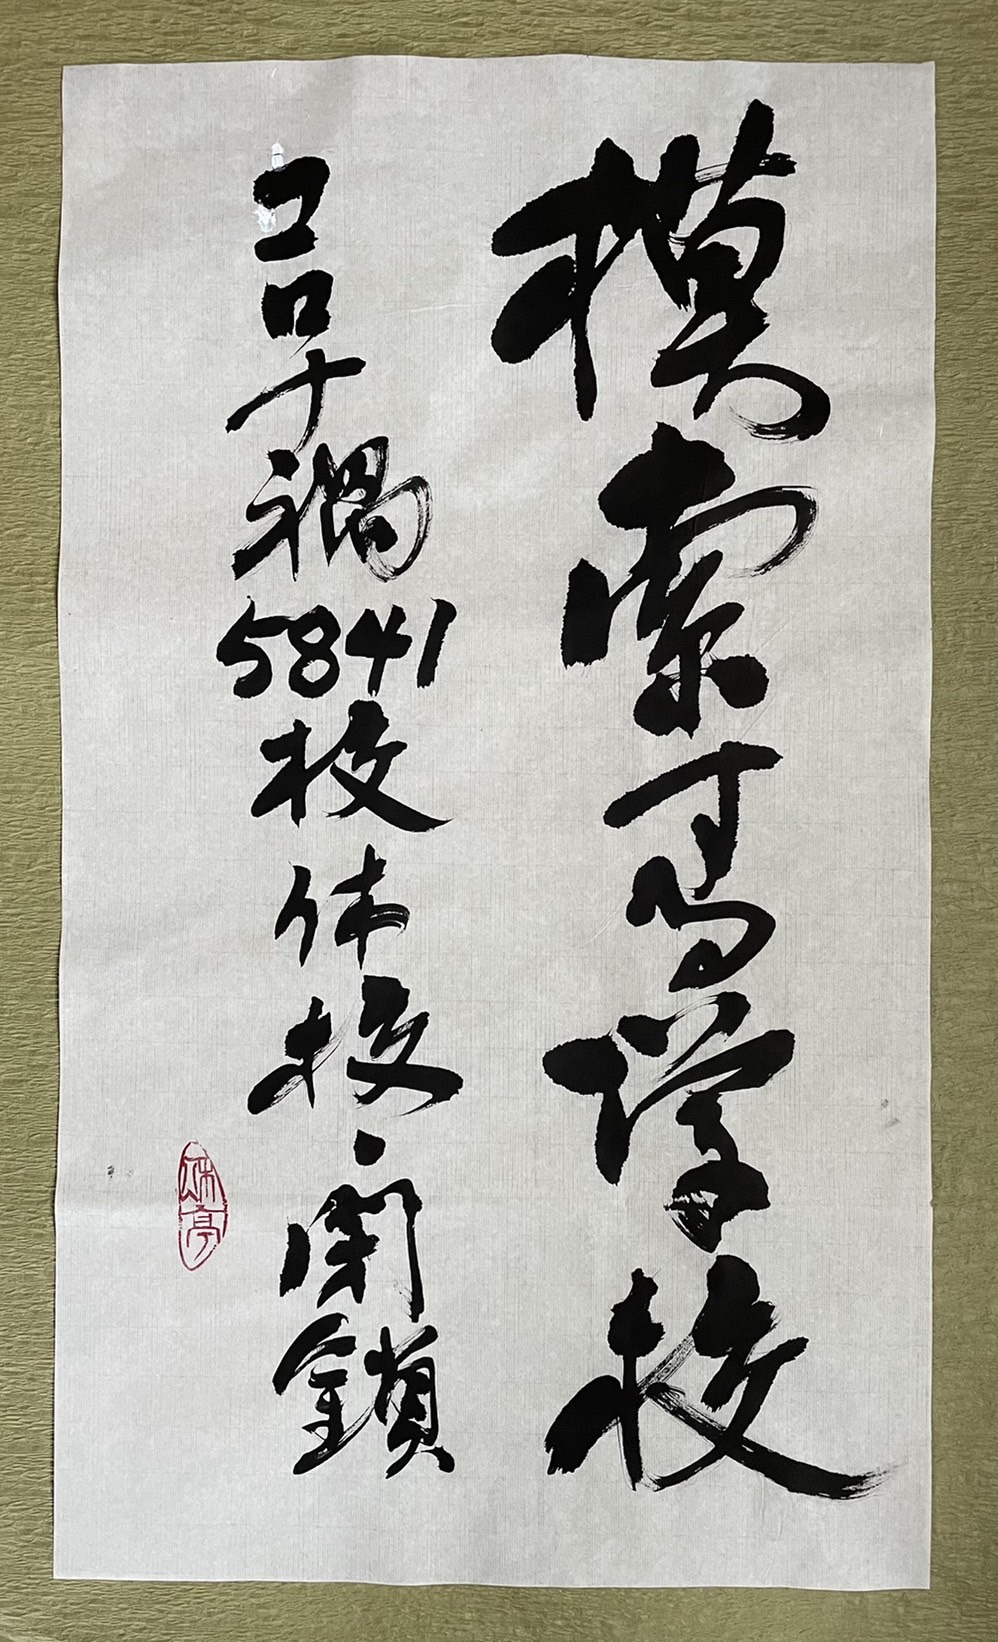 模索する学校
コロナ禍5841校休校・閉鎖